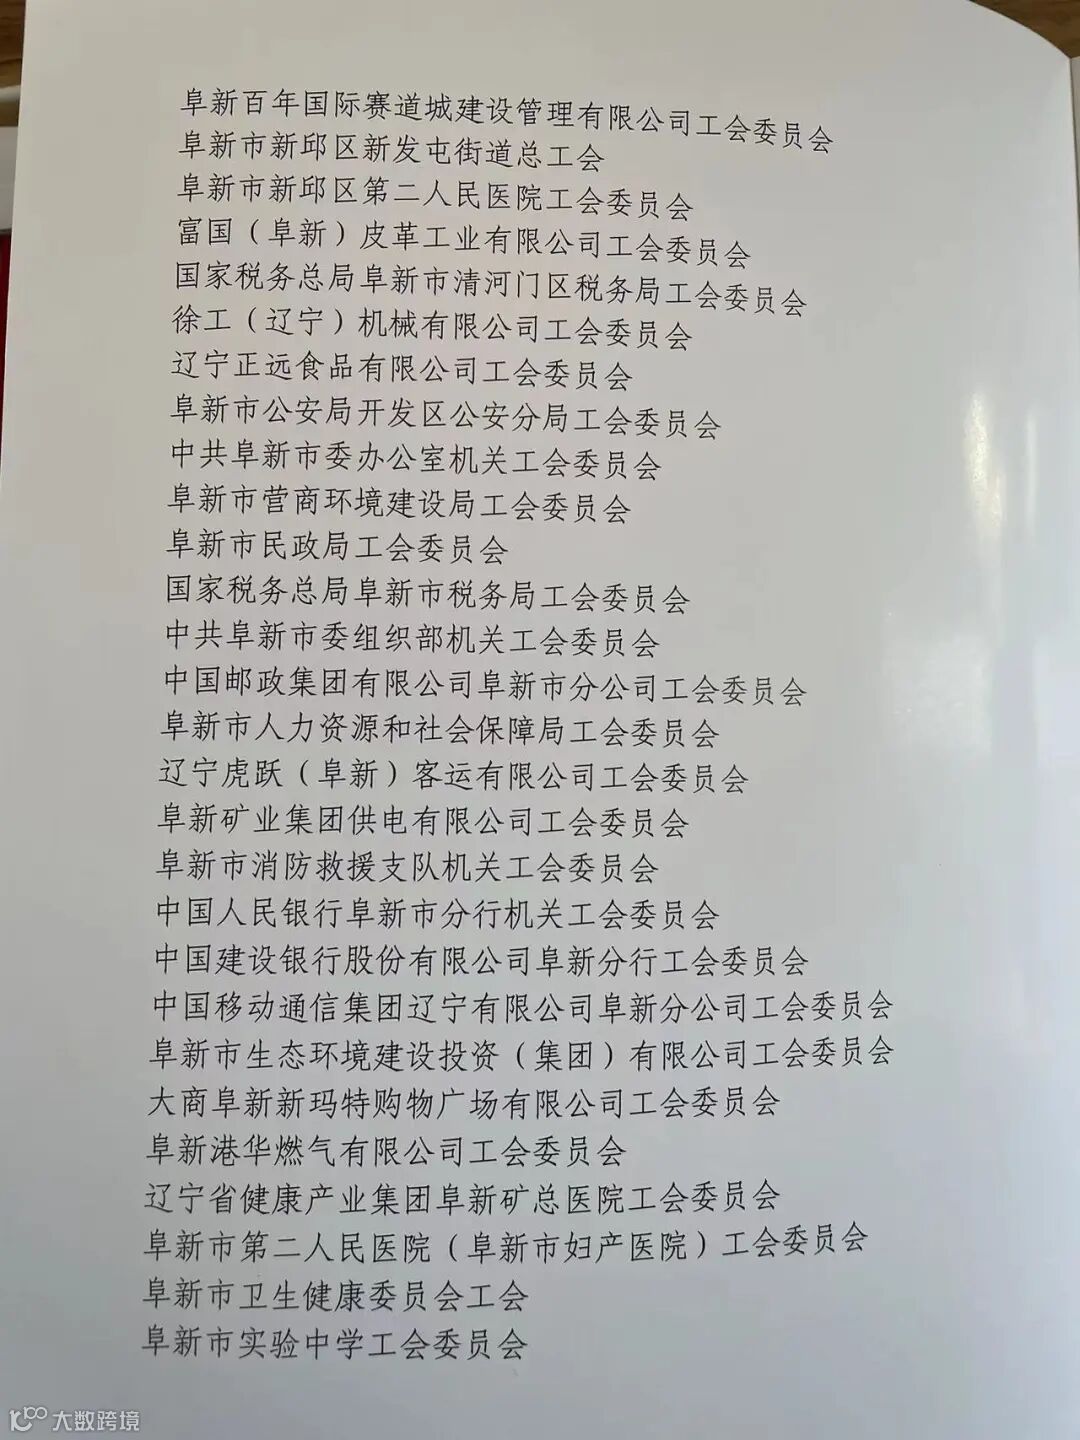 阜新百年国际赛道城建设管理有限公司工会委员会
阜新市新邱区新发屯街道总工会
阜新市新邱区第二人民医院工会委员会
富国（阜新）皮革工业有限公司工会委员会
国家税务总局阜新市清河门区税务局工会委员会
徐工（辽宁）机械有限公司工会委员会
辽宁正远食品有限公司工会委员会
阜新市公安局开发区公安分局工会委员会
中共阜新市委办公室机关工会委员会
阜新市营商环境建设局工会委员会
阜新市民政局工会委员会
国家税务总局阜新市税务局工会委员会
中共阜新市委组织部机关工会委员会
中国邮政集团有限公司阜新市分公司工会委员会
阜新市人力资源和社会保障局工会委员会
辽宁虎跃（阜新）客运有限公司工会委员会
阜新矿业集团供电有限公司工会委员会
阜新市消防救援支队机关工会委员会
中国人民银行阜新市分行机关工会委员会
中国建设银行股份有限公司阜新分行工会委员会
中国移动通信集团辽宁有限公司阜新分公司工会委员会
阜新市生态环境建设投资（集团）有限公司工会委员会
大商阜新新玛特购物广场有限公司工会委员会
阜新港华燃气有限公司工会委员会
辽宁省健康产业集团阜新矿总医院工会委员会
阜新市第二人民医院（阜新市妇产医院）工会委员会
阜新市卫生健康委员会工会
阜新市实验中学工会委员会
大数跨境